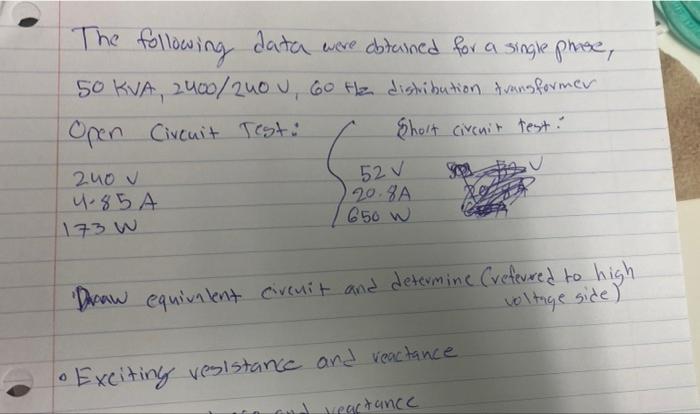 The following data were obtained for a single phase,
50 KVA, 2400/240 V, 60 Hz distribution transformer
Open Circuit Test:
Short circuit test:
240 V
4.85 A
173 W
52 V
20.8A
650 W
Draw equivalent circuit and determine (refevred to high
voltage side)
• Exciting resistance and reactance
and reactance